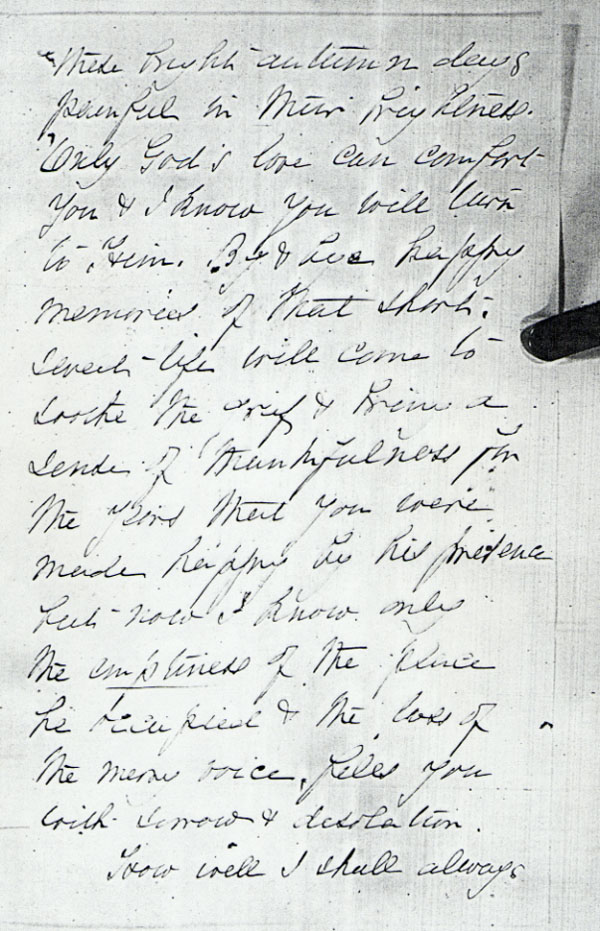 these bright autumn days
painful in their brightness.
Only God's love can comfort
you & I know you will turn
to Him. By & bye happy
memories of that short
sweet life will come to
soothe the grief & bring a
sense of thankfulness for
the years that you were
made happy by his presence
but now I know only
the emptiness of the place
he occupied & the loss of
the merry voice, fills you
with sorrow & desolation.
How well I shall always